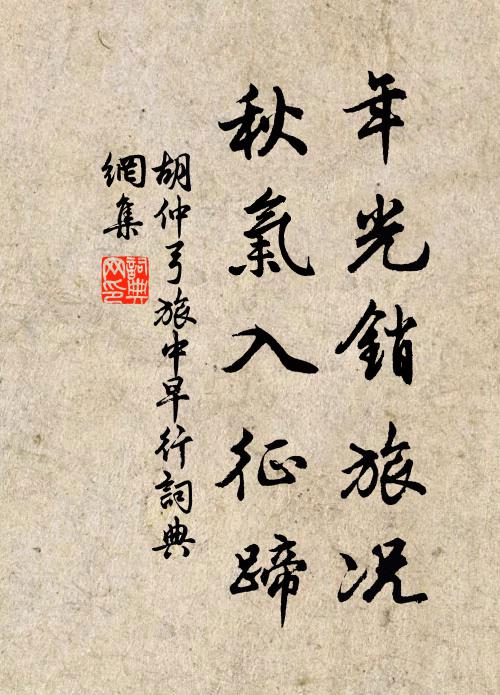 年光銷旅况
秋氣入征蹄
胡仲弓旅中早行詞典
網集
詞典网印